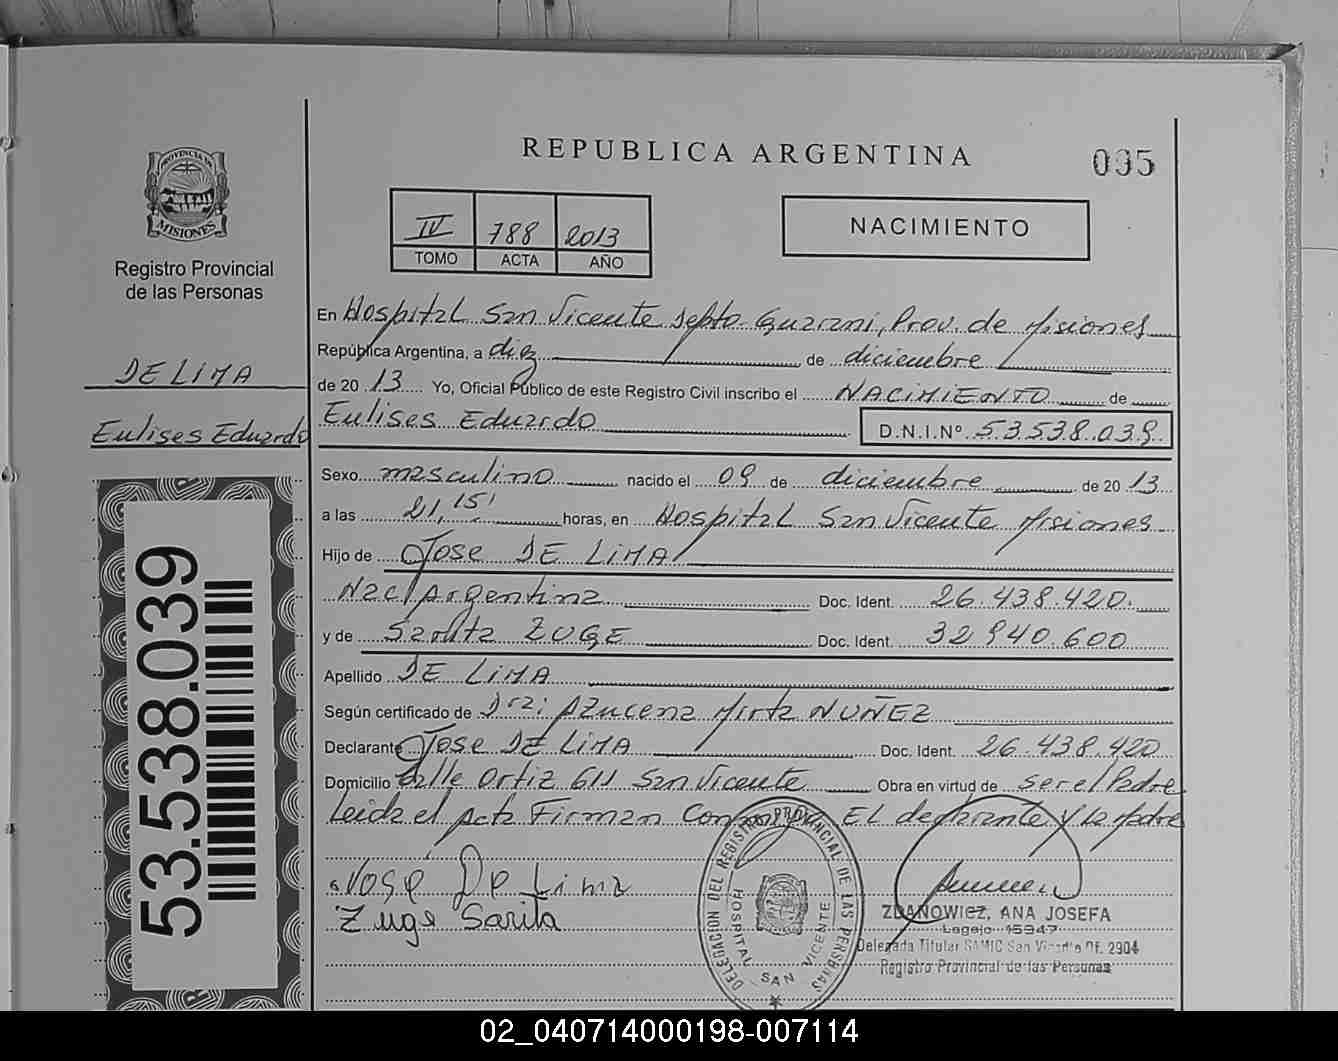 REPUBLICA ARGENTINA
095
PROVINCIA DE
MISIONES
Registro Provincial
de las Personas
IV 788 2013
TOMO ACTA AÑO
NACIMIENTO
En Hospital San Vicente Depto Guarani, Prov. de Misiones
República Argentina, a diez de diciembre
de 2013 Yo, Oficial Público de este Registro Civil inscribo el NACIMIENTO de
Eulises Eduardo D.N.I.Nº 53.538.039
DE LIMA
Eulises Eduardo
53.538.039
Sexo masculino nacido el 09 de diciembre de 2013
a las 21,15' horas, en Hospital San Vicente Misiones
Hijo de Jose DE LIMA
Nac/Argentina Doc. Ident. 26.438.420
y de Sarita ZUGE Doc. Ident. 32.940.600
Apellido DE LIMA
Según certificado de Dra: Azucena Mirta NUÑEZ
Declarante Jose DE LIMA Doc. Ident. 26.438.420
Domicilio Calle Ortiz 611 San Vicente Obra en virtud de ser el Padre
Leida el Acta Firman Conmigo EL declarante y la Madre
Jose De Lima
Zuge Sarita
DELEGACION DEL REGISTRO PROVINCIAL DE LAS PERSONAS
HOSPITAL SAN VICENTE
ZDANOWICZ, ANA JOSEFA
Legajo 15947
Delegada Titular SAMIC San Vicente Of. 2904
Registro Provincial de las Personas
02_040714000198-007114